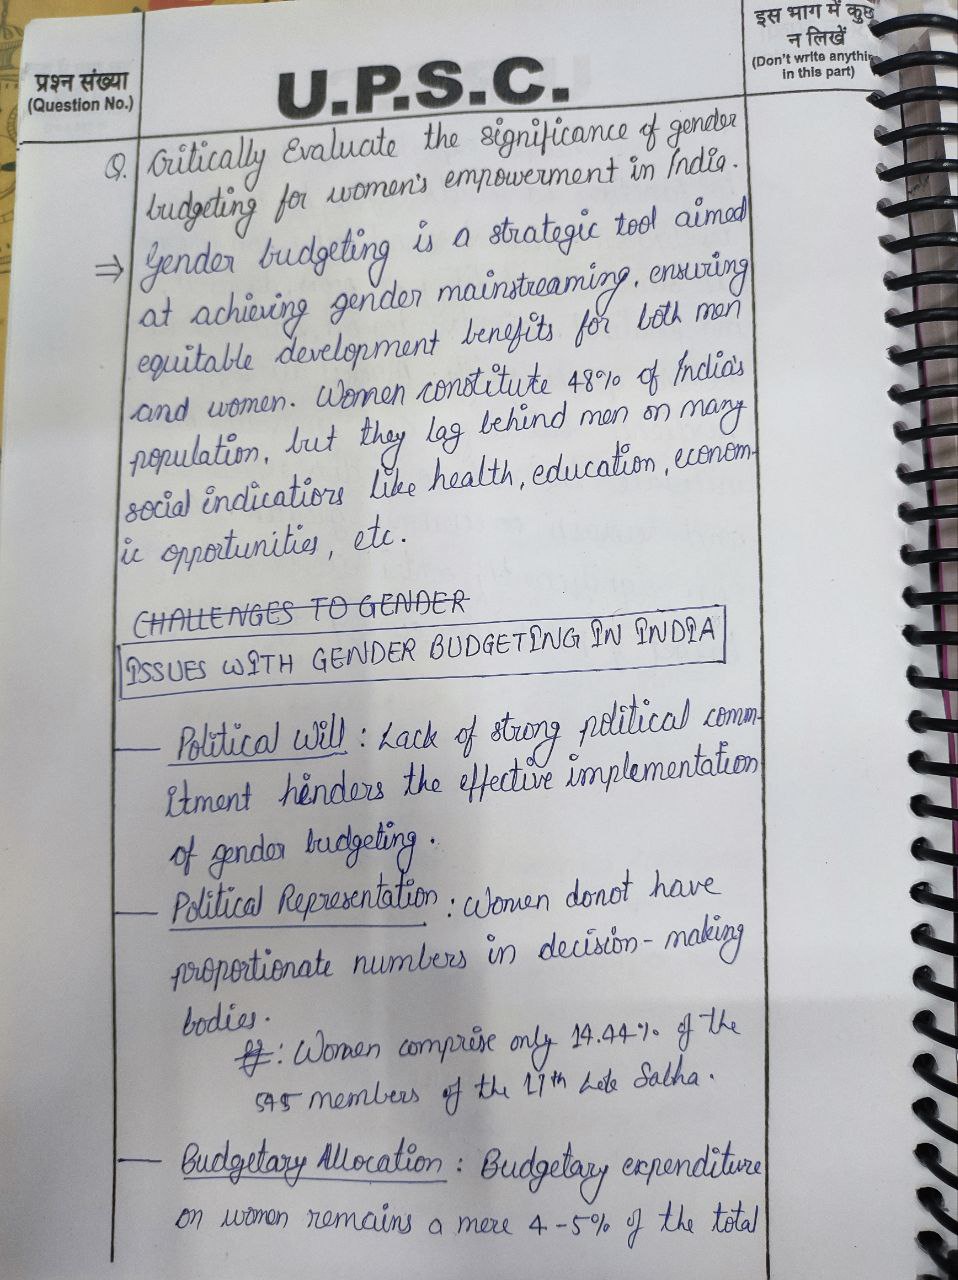 प्रश्न संख्या
(Question No.)
U.P.S.C.
इस भाग में कुछ
न लिखें
(Don't write anythin
in this part)
Q. Critically Evaluate the significance of gender
budgeting for women's empowerment in India.
⇒ Gender budgeting is a strategic tool aimed
at achieving gender mainstreaming, ensuring
equitable development benefits for both men
and women. Women constitute 48% of India's
population, but they lag behind men on many
social indicatiors like health, education, econom-
ic opportunities, etc.
CHALLENGES TO GENDER
ISSUES WITH GENDER BUDGETING IN INDIA
— Political Will : Lack of strong political comm-
itment hinders the effective implementation
of gender budgeting.
— Political Representation : Women donot have
proportionate numbers in decision-making
bodies.
: Women comprise only 14.44% of the
545 members of the 17th Lok Sabha.
— Budgetary Allocation : Budgetary expenditure
on women remains a mere 4-5% of the total